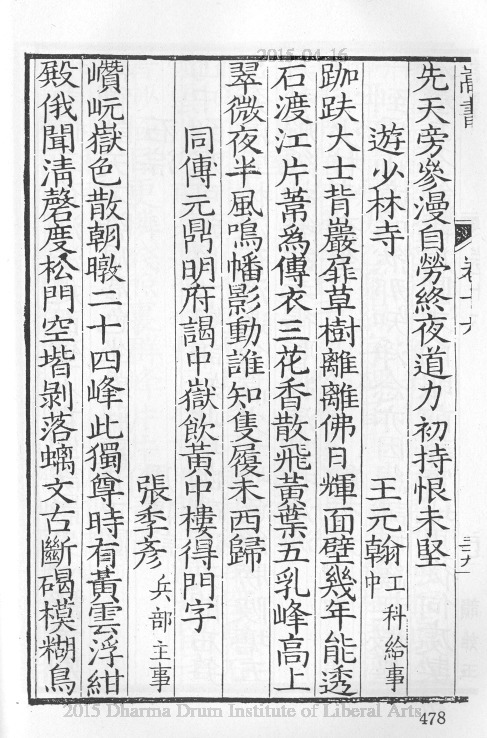 2015-04-16
嵩書
卷十六
三九
先天旁參漫自勞終夜道力初持恨未堅
遊少林寺
王元翰工科給事中
跏趺大士背巖扉草樹離離佛日輝面壁幾年能透
石渡江片葦為傳衣三花香散飛黃葉五乳峰高上
翠微夜半風鳴幡影動誰知隻履未西歸
同傅元鼎明府謁中嶽飲黃中樓得門字
張季彥兵部主事
巑岏嶽色散朝暾二十四峰此獨尊時有黃雲浮紺
殿俄聞清磬度松門空堦剝落螭文古斷碣模糊鳥
2015 Dharma Drum Institute of Liberal Arts
478